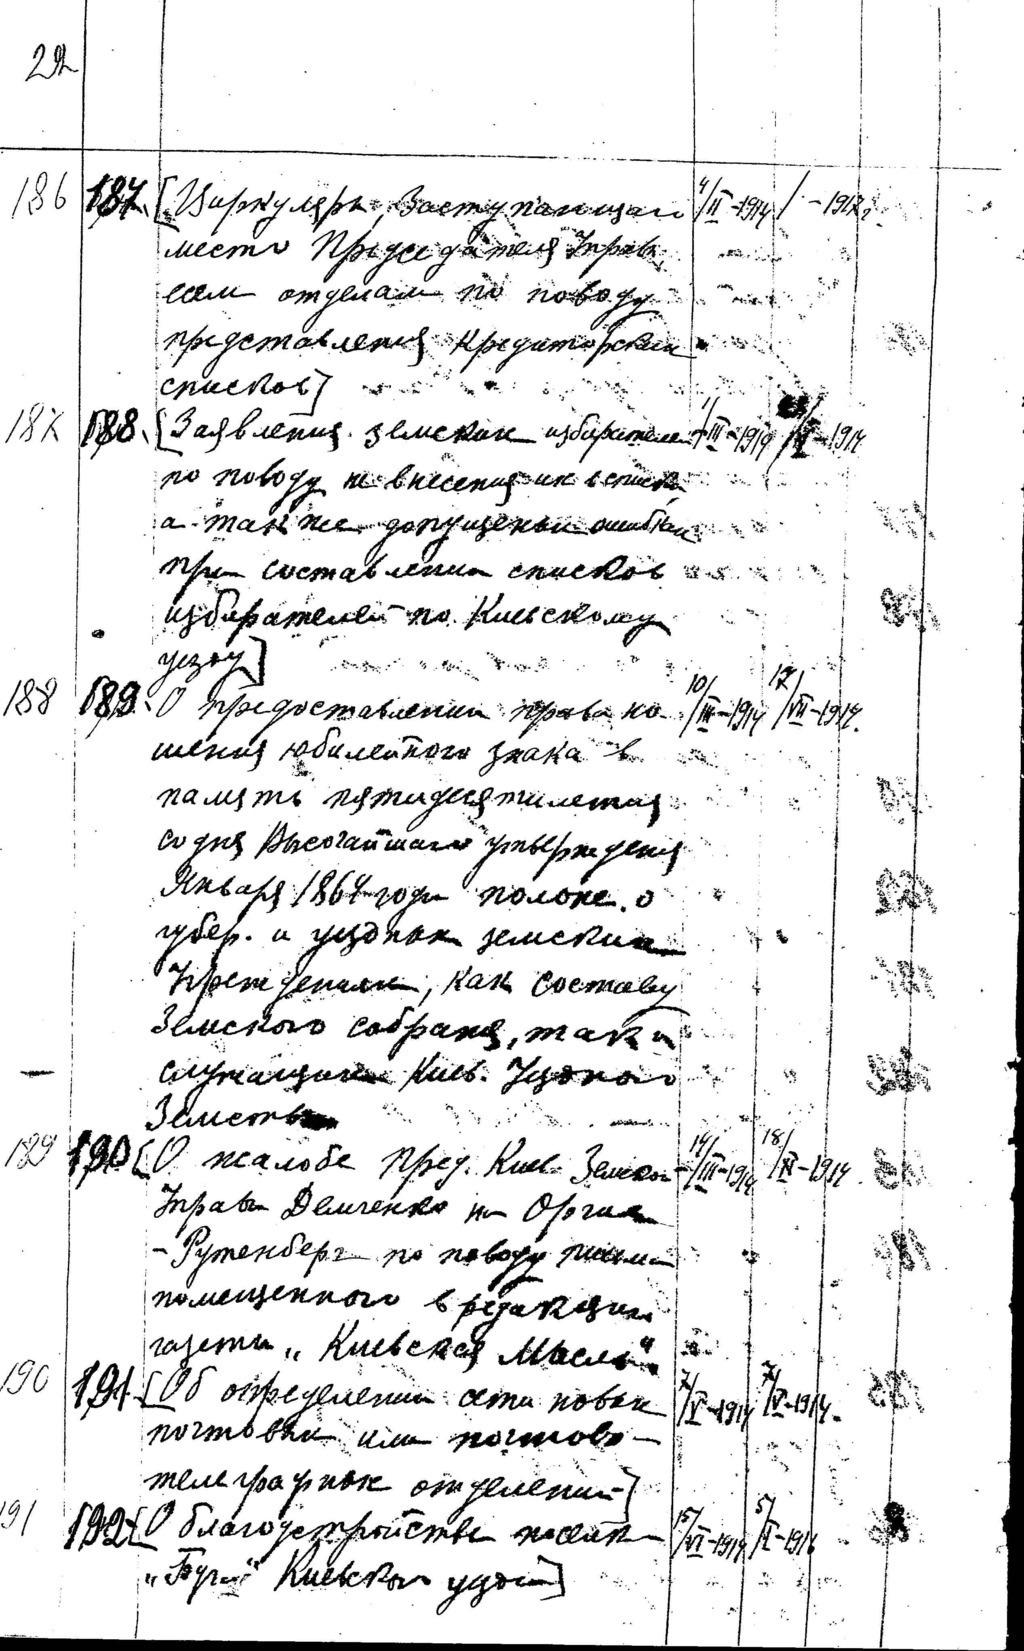 22
186 187. [Циркуляры Заступающаго 4/II-1914 / -1917.
место Председателя Управы
всем отделам по поводу
представления кредиторских
списков]
187 188. [Заявления земских избирателей 1/III-1919 /-1914
по поводу не внесения их в списки
а также допущеным ошибкам
при составлении списков
избирателей по Киевскому
уезду]
188 189. О предоставлении права но- 10/III-1914 17/VII-1914.
шения юбилейного знака в
память пятидесятилетия
со дня Высочайшаго утверждения
Января 1864 года полож. о
губер. и уездных земских
Учреждениях, как составу
Земского собрания, так и
служащим Киев. Уездного
Земства
189 190 [О жалобе Пред. Киев. Земской 14/III-1914 18/XI-1914.
Управы Демченко на
-Рутенберг по поводу письма
помещенного в редакции
газеты „Киевская Мысль".
190 191. [Об определении сети новых 7/V-1914 7/V-1914.
почтовых или почтово-
телеграфных отделений]
191 192. [О благоустройстве 5/VI-1914 5/-1916
Киевского уезда]